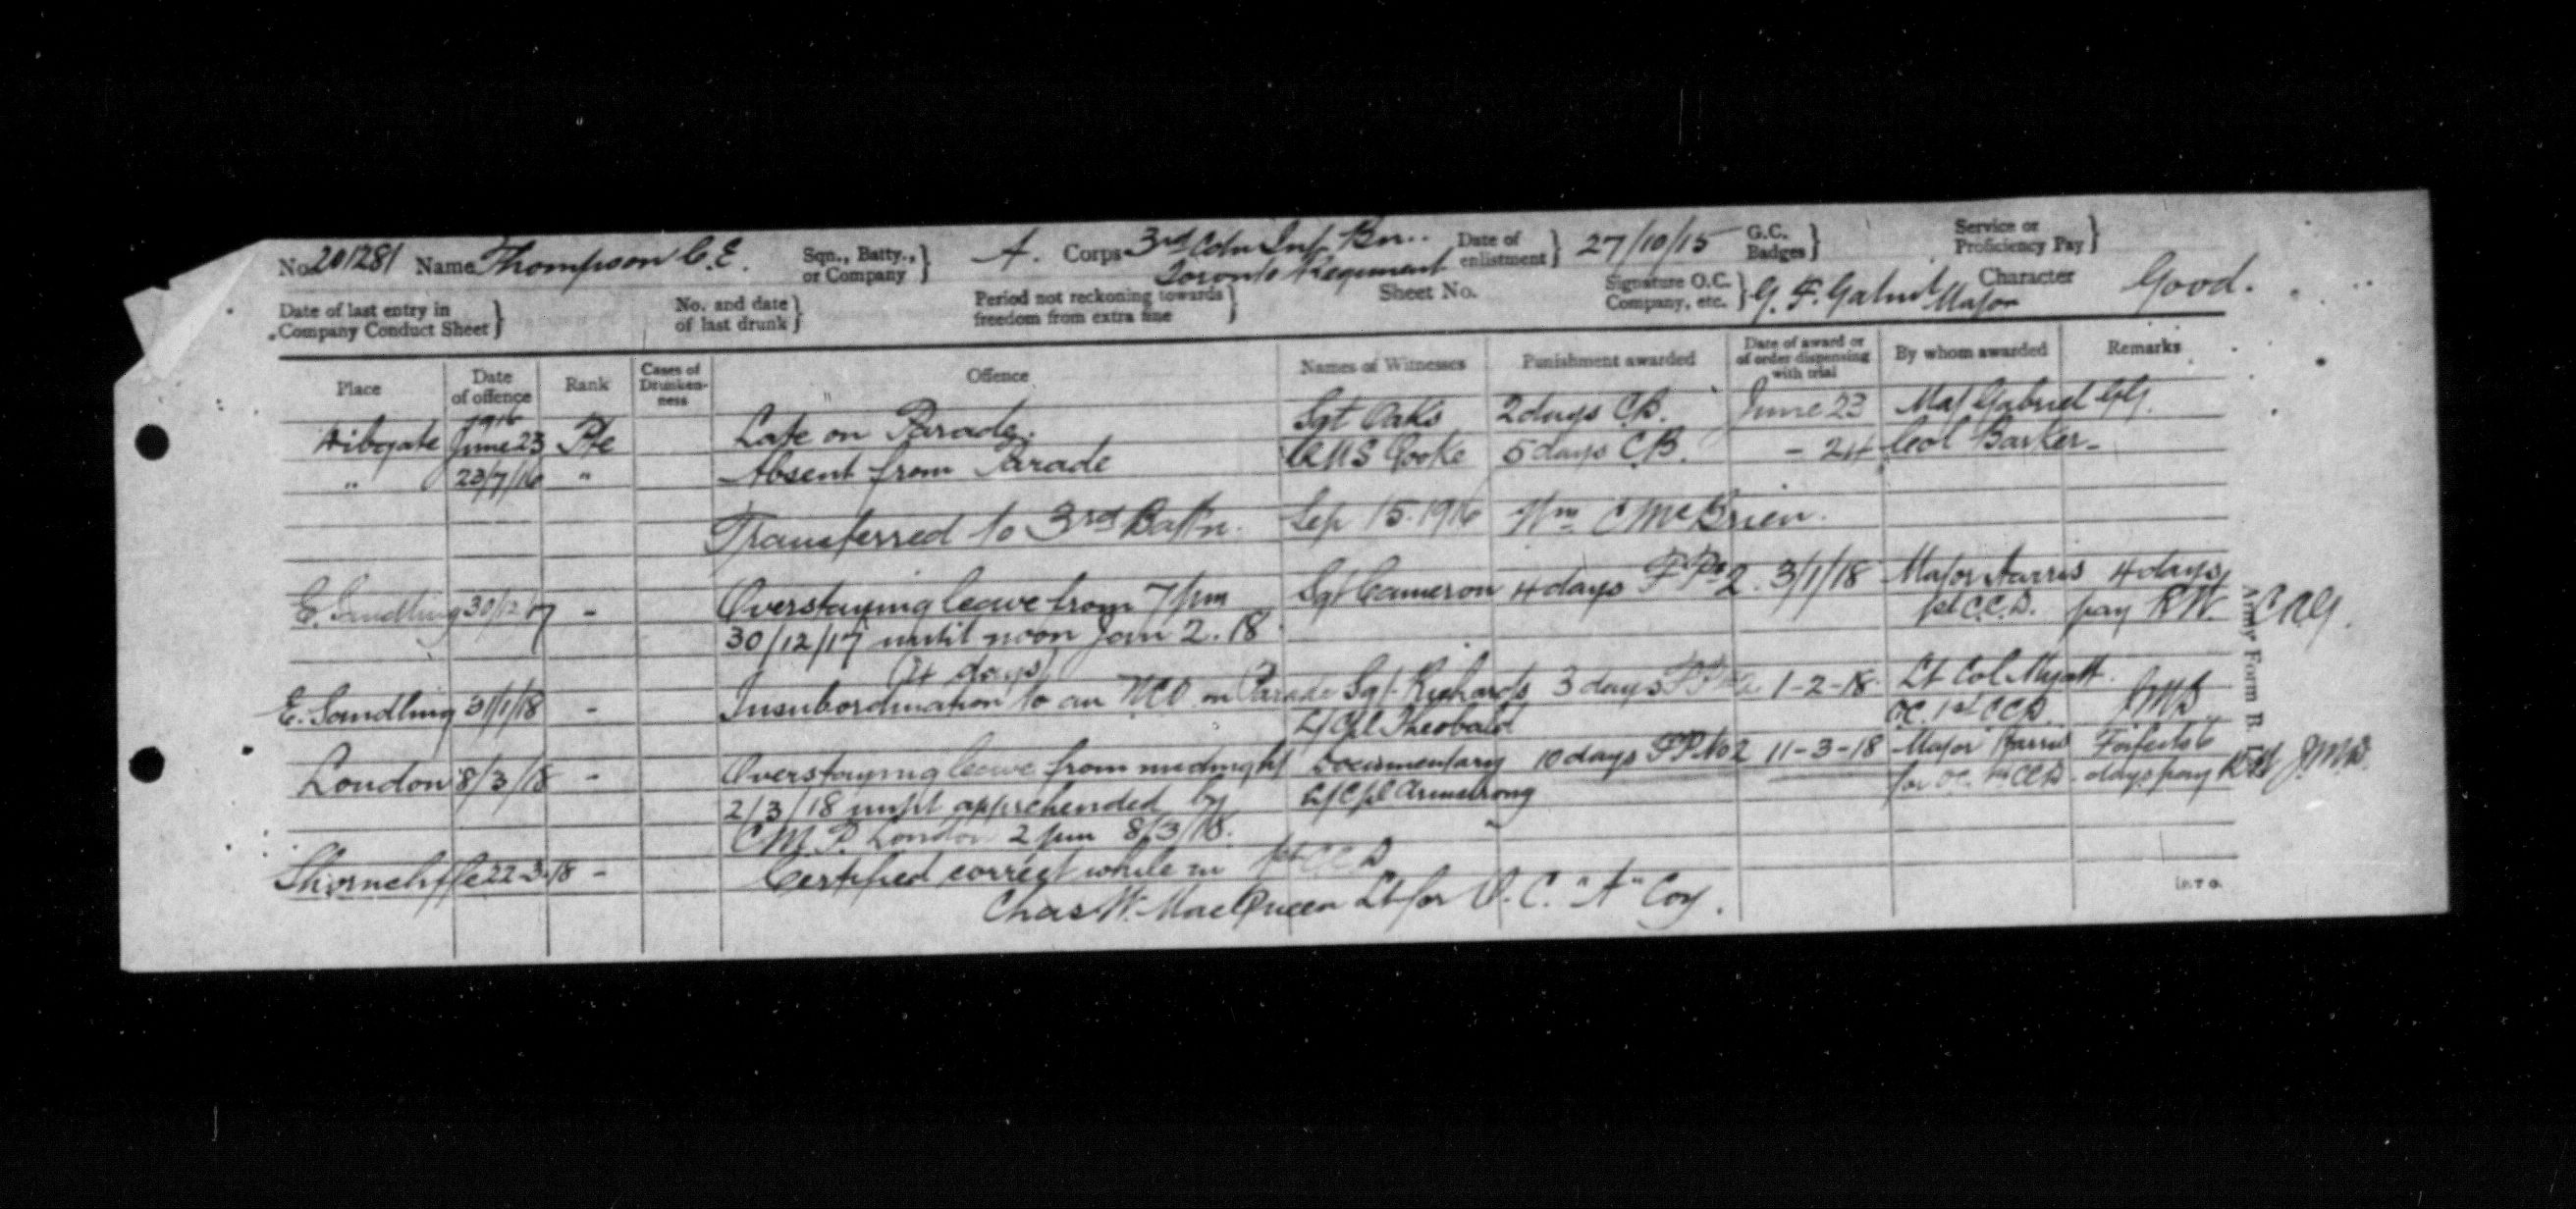 No. 201281 Name Thompson C.E. Sqn., Batty., or Company } A. Corps 3rd Cdn Inf. Bn. Toronto Regiment Date of enlistment } 27/10/15 G.C. Badges } Service or Proficiency Pay }
Date of last entry in Company Conduct Sheet } No. and date of last drunk } Period not reckoning towards freedom from extra fine } Sheet No. Signature O.C. Company, etc. } G. F. Major Character Good.
Place Date of offence Rank Cases of Drunken-ness Offence Names of Witnesses Punishment awarded Date of award or of order dispensing with trial By whom awarded Remarks
1916
June 23 Pte Late on Parade. Sgt Oaks 2 days C.B. June 23 Maj Gabriel
" 23/7/16 " Absent from Parade Cooke 5 days C.B. - 24 Col Barker
Transferred to 3rd Battn. Sep 15. 1916 Wm C McBrien.
E. Sandling 30/12/17 - Overstaying leave from 7 pm Sgt Cameron 4 days F P No 2. 3/1/18 Major Harris 4 days
30/12/17 until noon Jan 2. 18 1st C.C.D. pay R.W.
(4 days)
E. Sandling 31/1/18 - Insubordination to an NCO on Parade Sgt. Richards 3 days F P No 2 1-2-18 Lt Col Myatt.
L/Cpl Theobald OC. 1st CCD
London 8/3/18 - Overstaying leave from midnight Documentary 10 days F P No 2 11-3-18 Major Harris Forfeits 6
2/3/18 until apprehended by L/Cpl Armstrong for OC. 1st CCD. days pay
C.M.P. London 2 pm 8/3/18.
Shorncliffe 22-3-18 - Certified correct while in 1st CCD
Chas W. MacQueen Lt for O.C. "A" Coy.
Army Form B.
P.T.O.